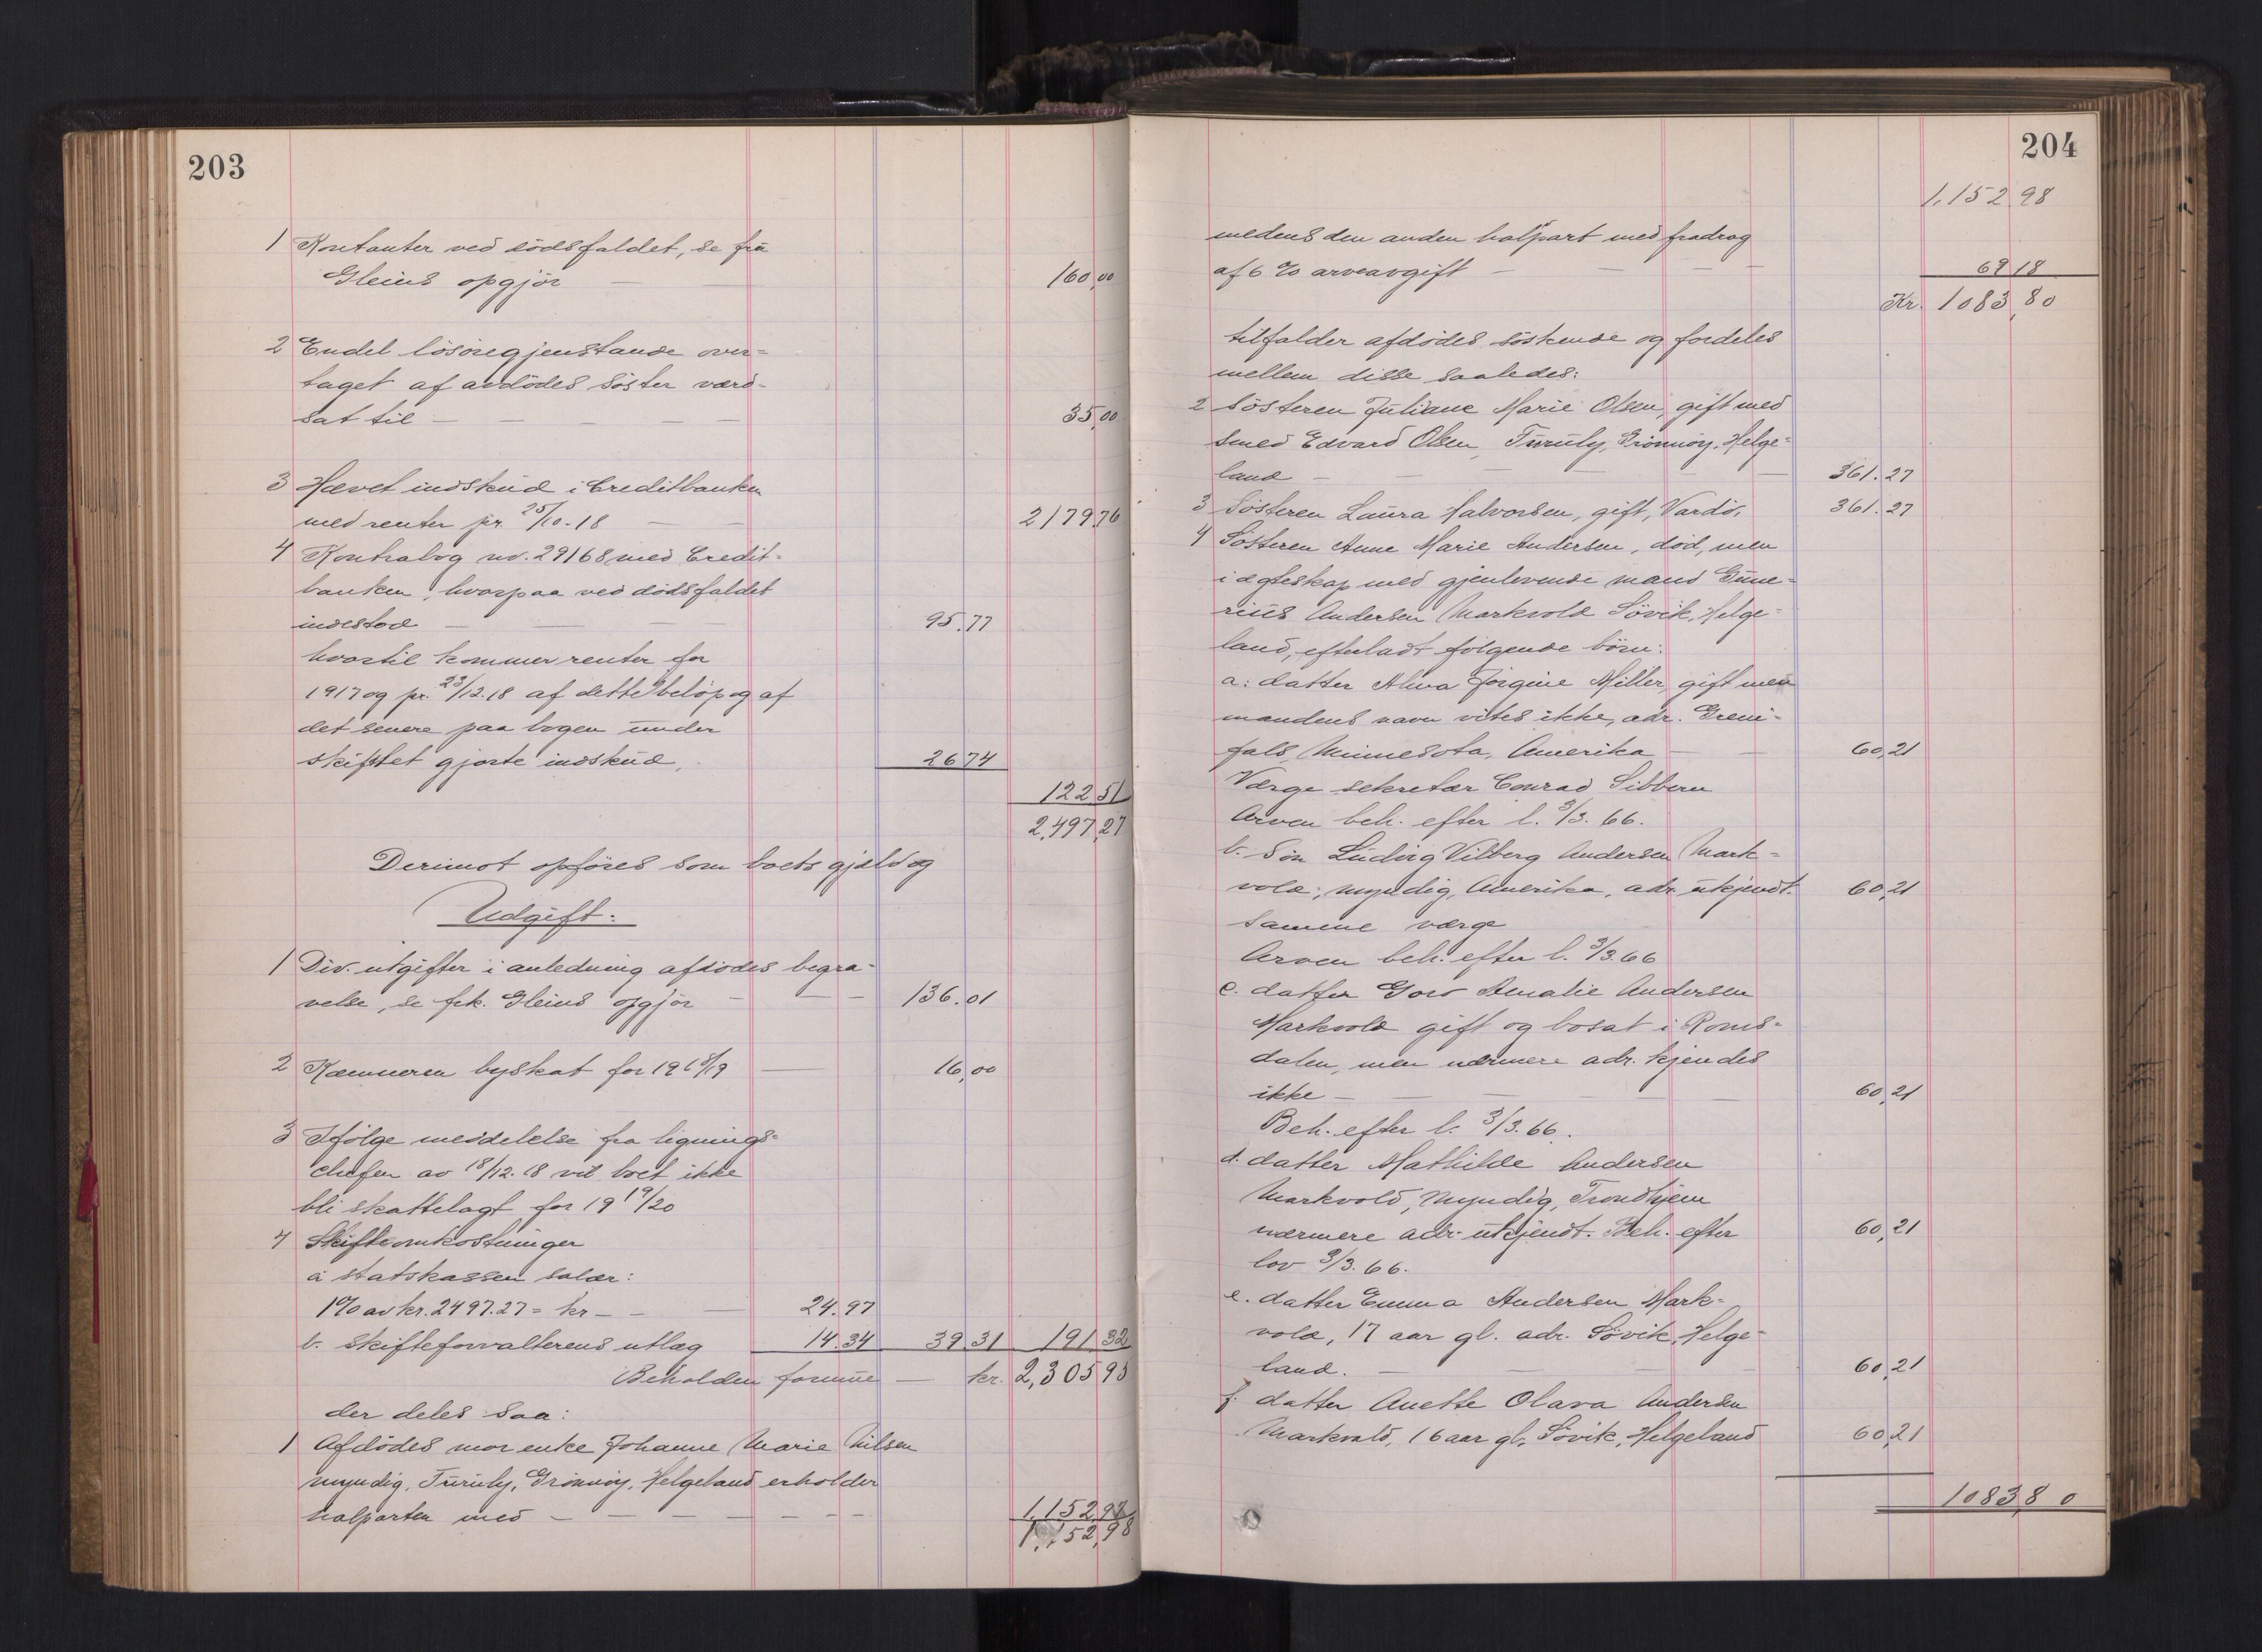 203
1 Kontanter ved dödsfaldet, se frk
Gleins opgjör — — 160,00
2 Endel lösöregjenstande over=
taget af avdödes söster værd-
sat til — — — — — 35,00
3 Hævet indskud i Creditbanken
med renter pr. 25/10-18 — — 2179,76
4 Kontrabog no. 29168 med Credit-
banken, hvorpaa ved dödsfaldet
indestod — — — — 95.77
hvortil kommer renter for
1917 og pr. 23/12.18 af dette belöp og af
det senere paa bogen under
skiftet gjorte indskud, 26 74
122 51
2,497,27
Derimot opföres som boets gjæld og
Udgift:
1 Div. utgifter i anledning afdödes begra-
velse, se frk. Gleins opgjör — — — 136.01
2 Kæmneren byskat for 1918/19 — 16,00
3 Ifölge meddelelse fra lignings-
chefen av 18/12.18 vil boet ikke
bli skattelagt for 1919/20
4 Skifteomkostninger
a statskassen salær:
1% av kr. 2497.27 = kr — — — 24.97
b. skifteforvalterens utlæg 14.34 39 31 191 32
Beholden formue — kr. 2,305 95
der deles saa:
1 Afdödes mor enke Johanne Marie Nilsen
myndig, Furuly, Grönnöy, Helgeland erholder
halparten med — — — — — — — 1,152,97
1,152,98
204
1,152 98
medens den anden halpart med fradrag
af 6 % arveavgift — — — — 69 18
Kr. 1083,80
tilfalder afdödes söskende og fordeles
mellem disse saaledes:
2 Sösteren Juliane Marie Olsen, gift med
smed Edvard Olsen, Furuly, Grönnöy, Helge=
land — — — — — 361.27
3 Sösteren Laura Halvorsen, gift, Vardö, 361.27
4 Sösteren Anne Marie Andersen, död, men
i ægteskap med gjenlevende mand Gune-
rius Andersen Markvold Sövik, Helge=
land, efterladt fölgende börn:
a: datter Alma Jörgine Miller, gift men
mandens navn vites ikke, adr. Greni-
fals, Minnesota, Amerika — — 60,21
Værge sekretær Conrad Sibbern
Arven beh. efter l. 3/3. 66.
b. Sön Ludvig Vilberg Andersen Mark=
vold, myndig, Amerika, adr. ukjendt. 60,21
samme værge
Arven beh. efter l. 3/3.66
c. datter Goro Amalie Andersen
Markvold gift og bosat i Roms=
dalen, men nærmere adr. kjendes
ikke — — — — — — 60,21
Beh. efter l. 3/3.66.
d. datter Mathilde Andersen
Markvold, myndig, Trondhjem
nærmere adr. ukjendt. Beh. efter 60,21
lov 3/3. 66.
e. datter Emma Andersen Mark-
vold, 17 aar gl. adr. Sövik, Helge-
land. — — — — 60,21
f. datter Anette Olava Andersen
Markvold, 16 aar gl, Sövik, Helgeland 60,21
1083,80